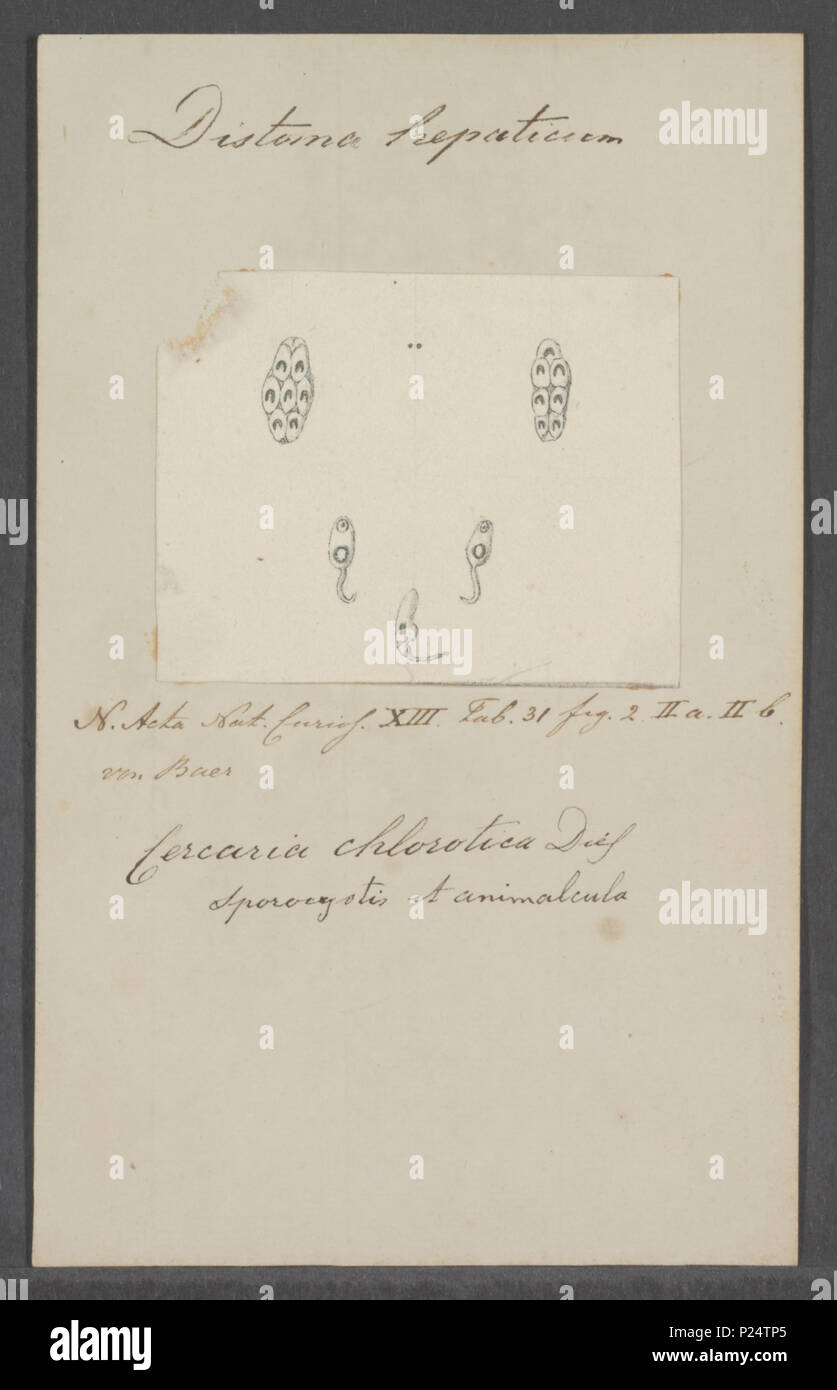 Distoma hepaticum
N. Acta Nat. Curios. XIII. Tab. 31 fig. 2 II a. II b.
von Baer
Cercaria chlorotica Dies
sporocystis et animalcula
alamy
Image ID: P24TP5
www.alamy.com